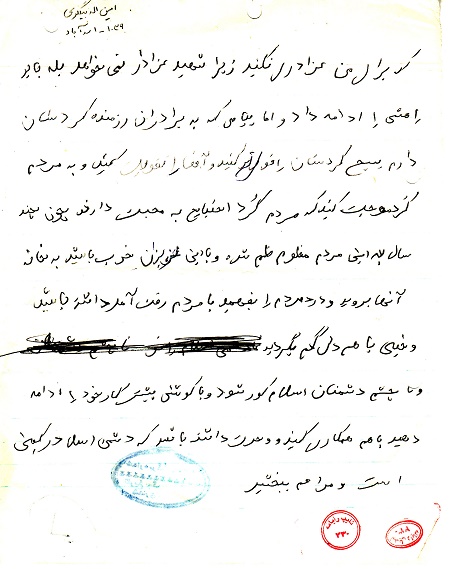 برای من عزاداری نکنید زیرا شهید عزادار نمی‌خواهد بلکه باید
راهش را ادامه داد و اما پیامی که به برادران رزمنده کردستان
دارم بسیج کردستان را قوی تر کنید و آنها را کمک کنید و به مردم
کرد محبت کنید که مردم کرد احتیاج به محبت دارند چون چند
سال به این مردم مظلوم ظلم شده و با این عزیزان خوب باشید به خانه
آنها بروید و درد مردم را بفهمید با مردم رفت آمد داشته باشید
و خیلی با هم دل گرم بگردید
و تا چشم دشمنان اسلام کور شود و با کوشش بیشتر کار خود را ادامه
دهید با هم همکاری کنید و وحدت داشته باشید که دشمن اسلام در کمین
است و مرا هم ببخشید
۲۳۰